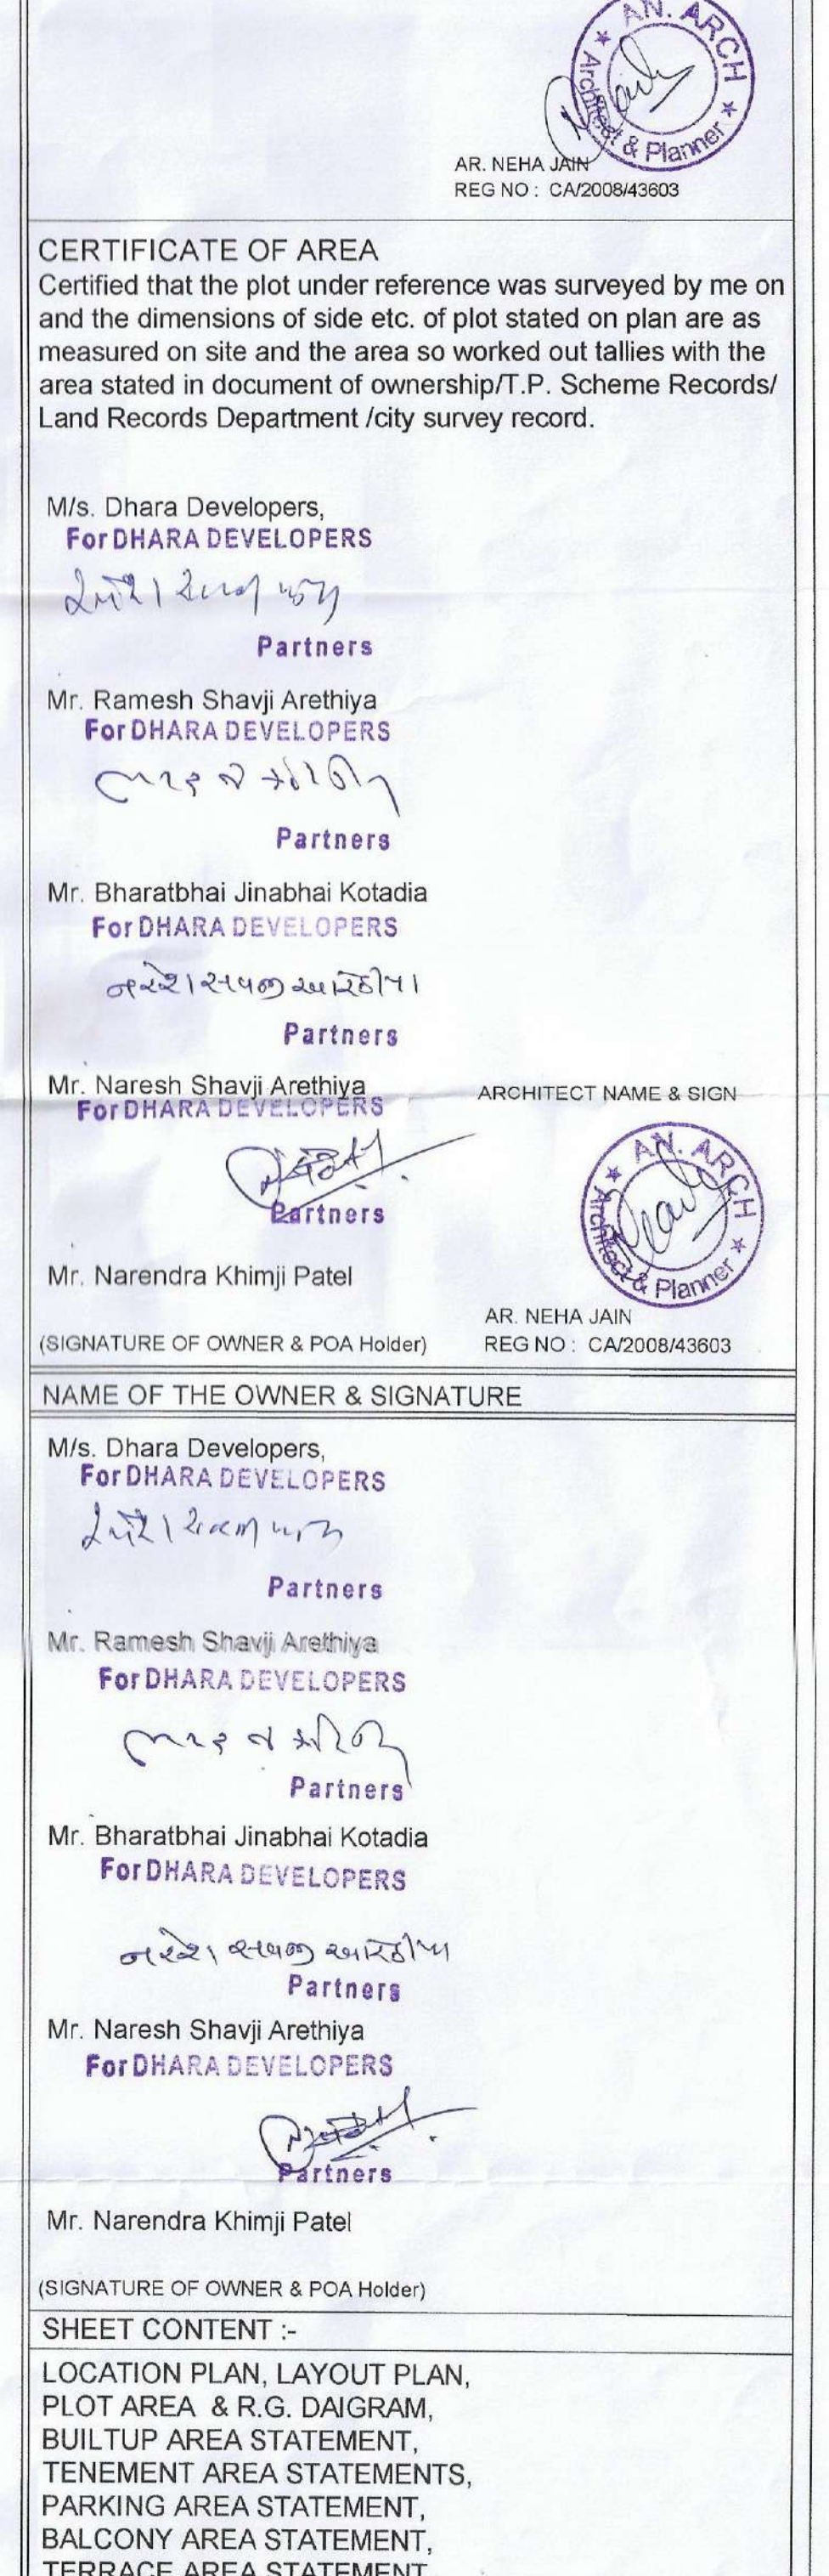 AN. ARCH
Architect & Planner
AR. NEHA JAIN
REG NO : CA/2008/43603
CERTIFICATE OF AREA
Certified that the plot under reference was surveyed by me on
and the dimensions of side etc. of plot stated on plan are as
measured on site and the area so worked out tallies with the
area stated in document of ownership/T.P. Scheme Records/
Land Records Department /city survey record.
M/s. Dhara Developers,
For DHARA DEVELOPERS
Partners
Mr. Ramesh Shavji Arethiya
For DHARA DEVELOPERS
Partners
Mr. Bharatbhai Jinabhai Kotadia
For DHARA DEVELOPERS
Partners
Mr. Naresh Shavji Arethiya
For DHARA DEVELOPERS
Partners
Mr. Narendra Khimji Patel
(SIGNATURE OF OWNER & POA Holder)
ARCHITECT NAME & SIGN
AN. ARCH
Architect & Planner
AR. NEHA JAIN
REG NO : CA/2008/43603
NAME OF THE OWNER & SIGNATURE
M/s. Dhara Developers,
For DHARA DEVELOPERS
Partners
Mr. Ramesh Shavji Arethiya
For DHARA DEVELOPERS
Partners
Mr. Bharatbhai Jinabhai Kotadia
For DHARA DEVELOPERS
Partners
Mr. Naresh Shavji Arethiya
For DHARA DEVELOPERS
Partners
Mr. Narendra Khimji Patel
(SIGNATURE OF OWNER & POA Holder)
SHEET CONTENT :-
LOCATION PLAN, LAYOUT PLAN,
PLOT AREA & R.G. DAIGRAM,
BUILTUP AREA STATEMENT,
TENEMENT AREA STATEMENTS,
PARKING AREA STATEMENT,
BALCONY AREA STATEMENT,
TERRACE AREA STATEMENT